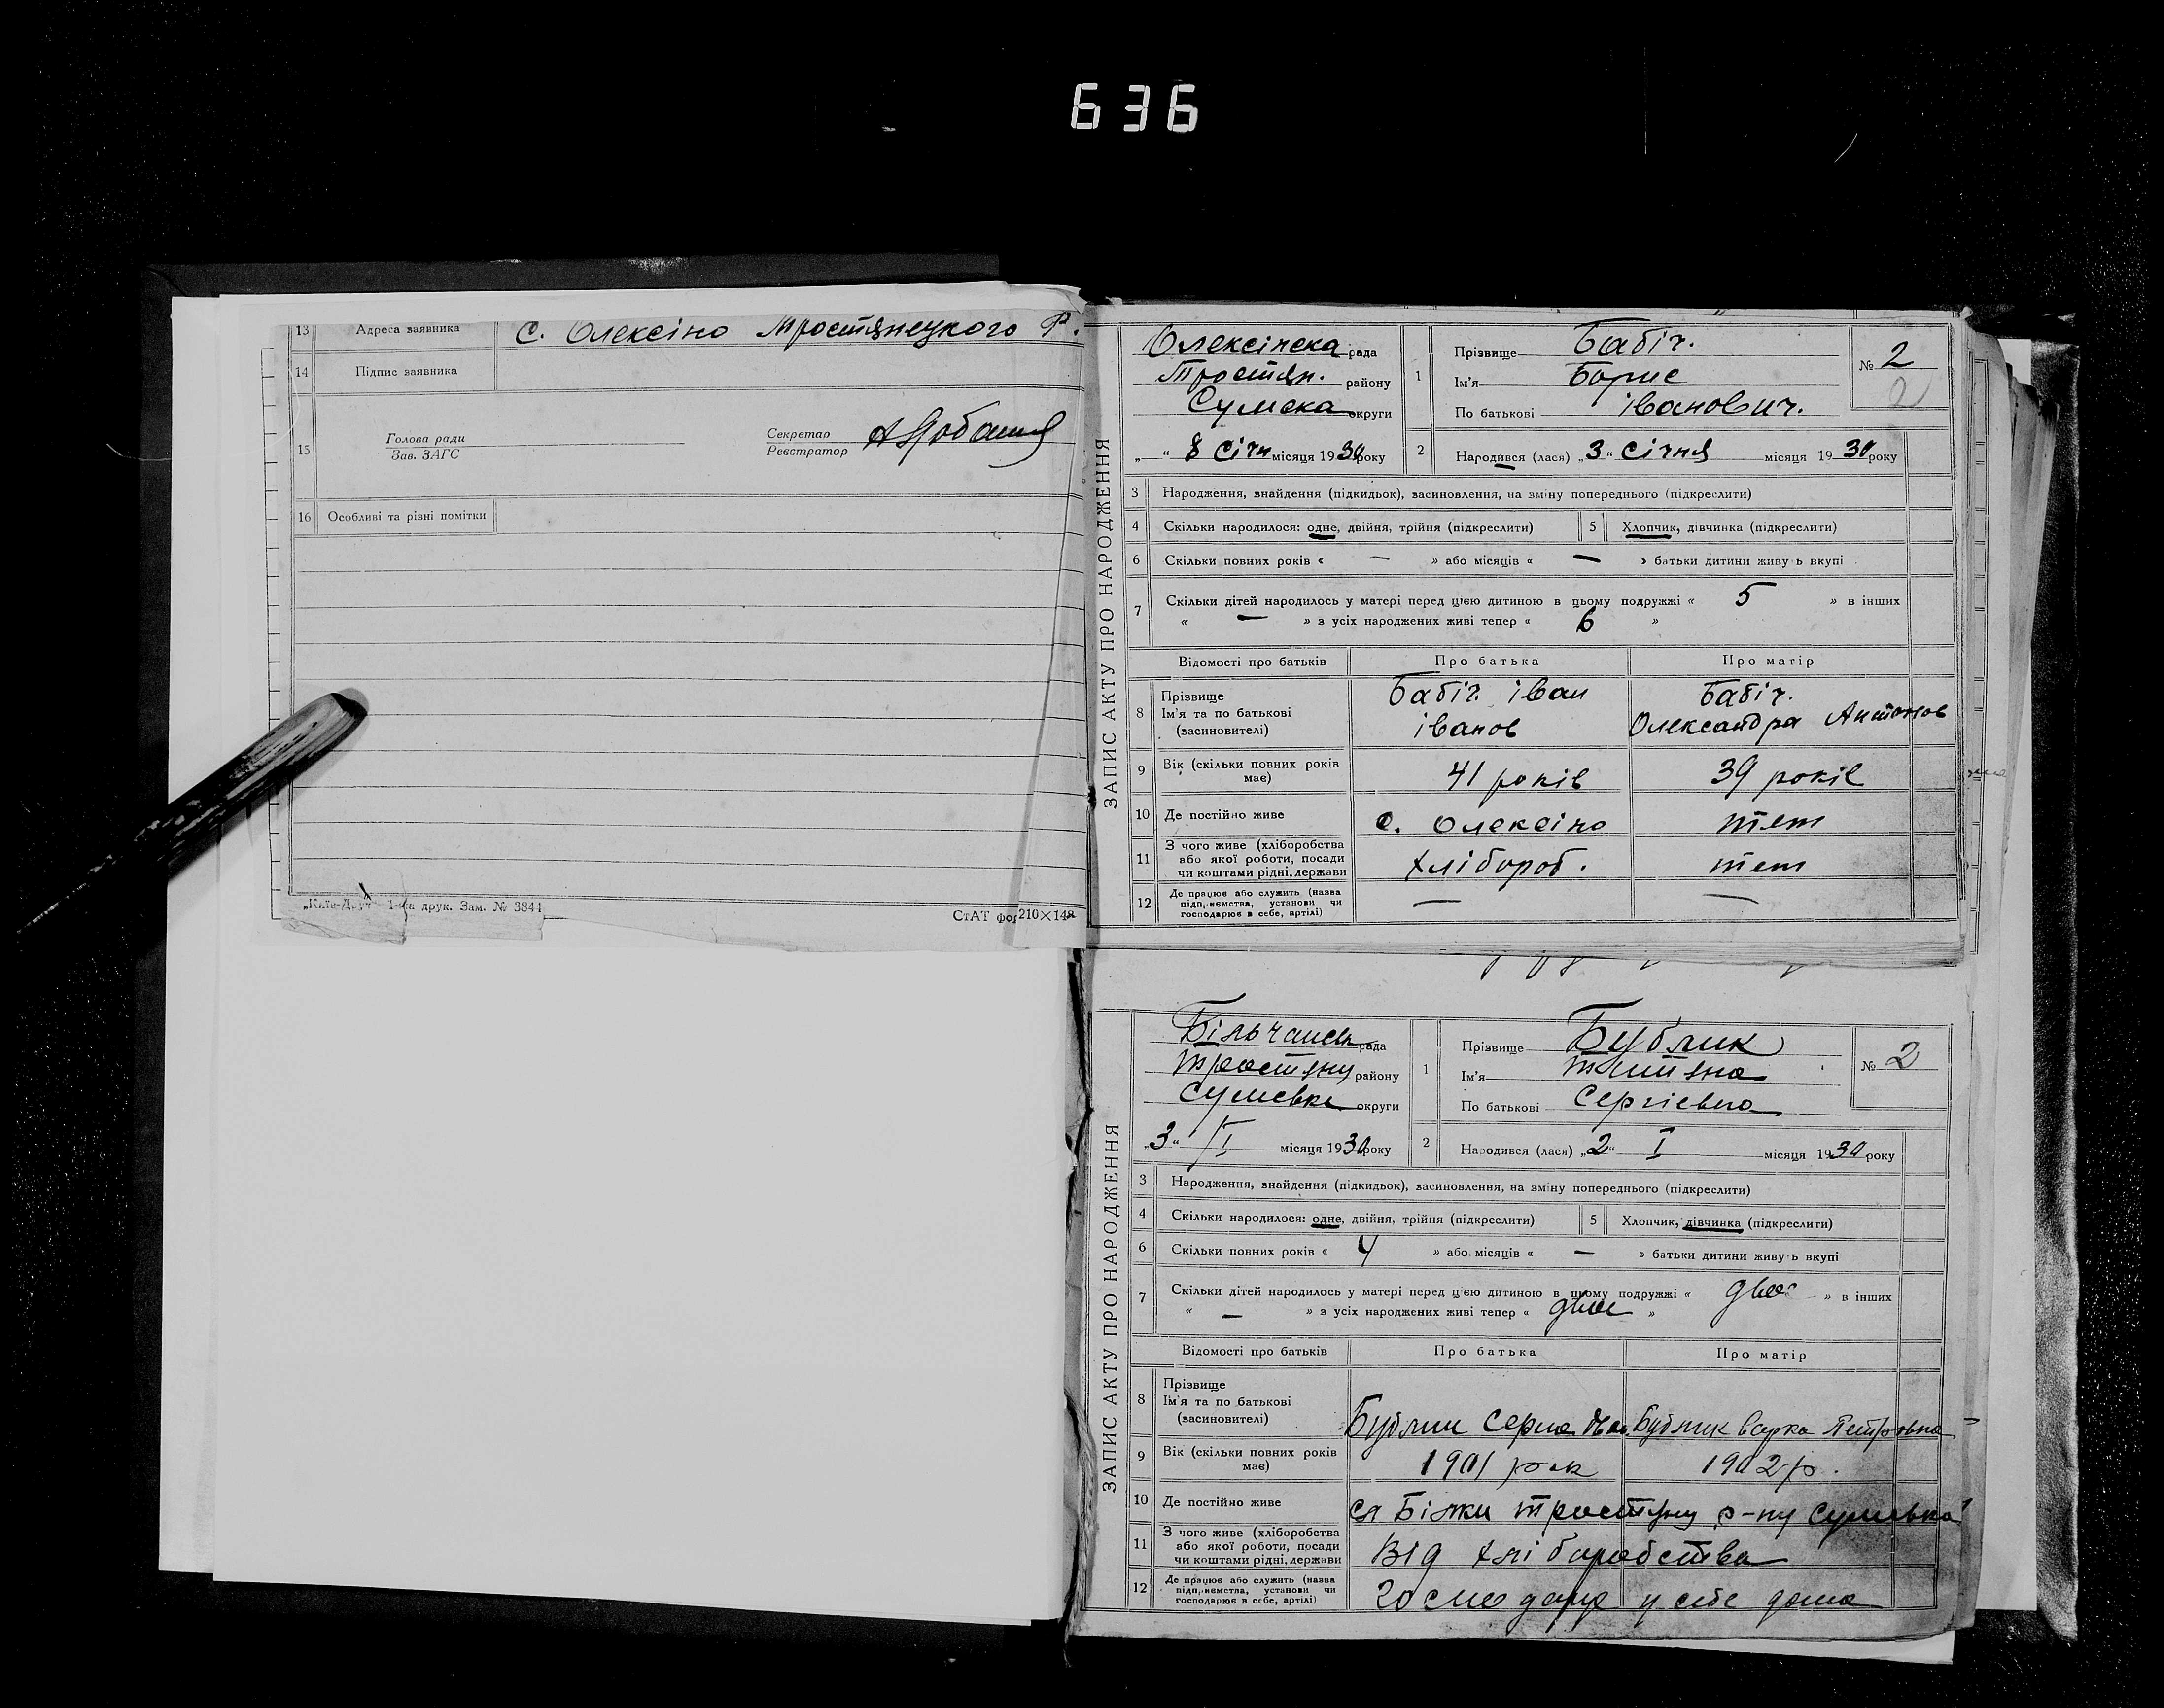 636
13 Адреса заявника с. Олексіно Тростянецкого Р.
14 Підпис заявника
15 Голова ради Секретар
Зав. ЗАГС Реєстратор
16 Особливі та різні помітки
1-ша друк. Зам. № 3841
СтАТ фор 210×148
ЗАПИС АКТУ ПРО НАРОДЖЕННЯ
Олексінска рада
Тростян. району
Сумска округи
„ “ 8 Січн місяця 1930 року
1 Прізвище Бабіч.
Ім'я Борис
По батькові Іванович.
№ 2
2
2 Народився (лася) „3“ Січня місяця 1930 року
3 Народження, знайдення (підкидьок), засиновлення, на зміну попереднього (підкреслити)
4 Скільки народилося: одне, двійня, трійня (підкреслити) 5 Хлопчик, дівчинка (підкреслити)
6 Скільки повних років « — » або місяців « — » батьки дитини живуть вкупі
7 Скільки дітей народилось у матері перед цією дитиною в цьому подружжі « 5 » в інших
« — » з усіх народжених живі тепер « 6 »
Відомості про батьків Про батька Про матір
8 Прізвище Ім'я та по батькові (засиновителі) Бабіч Іван Іванов Бабіч. Олександра Антонов
9 Вік (скільки повних років має) 41 років 39 років
10 Де постійно живе с. Олексіно теж
11 З чого живе (хліборобства або якої роботи, посади чи коштами рідні, держави Хлібороб. теж
12 Де працює або служить (назва підприємства, установи чи господарює в себе, артілі) — —
ЗАПИС АКТУ ПРО НАРОДЖЕННЯ
рада
району
округи
„3“ / I місяця 1930 року
1 Прізвище Бублик
Ім'я Тетяна
По батькові Сергієвна
№ 2
2 Народився (лася) „2“ I місяця 1930 року
3 Народження, знайдення (підкидьок), засиновлення, на зміну попереднього (підкреслити)
4 Скільки народилося: одне, двійня, трійня (підкреслити) 5 Хлопчик, дівчинка (підкреслити)
6 Скільки повних років « 4 » або місяців « — » батьки дитини живуть вкупі
7 Скільки дітей народилось у матері перед цією дитиною в цьому подружжі « двоє » в інших
« — » з усіх народжених живі тепер « двоє »
Відомості про батьків Про батька Про матір
8 Прізвище Ім'я та по батькові (засиновителі) Бублик Бублик Варка Петровна
9 Вік (скільки повних років має) 1901 рок 1902 р.
10 Де постійно живе Білки р-ну
11 З чого живе (хліборобства або якої роботи, посади чи коштами рідні, держави Від хліборобства
12 Де працює або служить (назва підприємства, установи чи господарює в себе, артілі) у себе дома